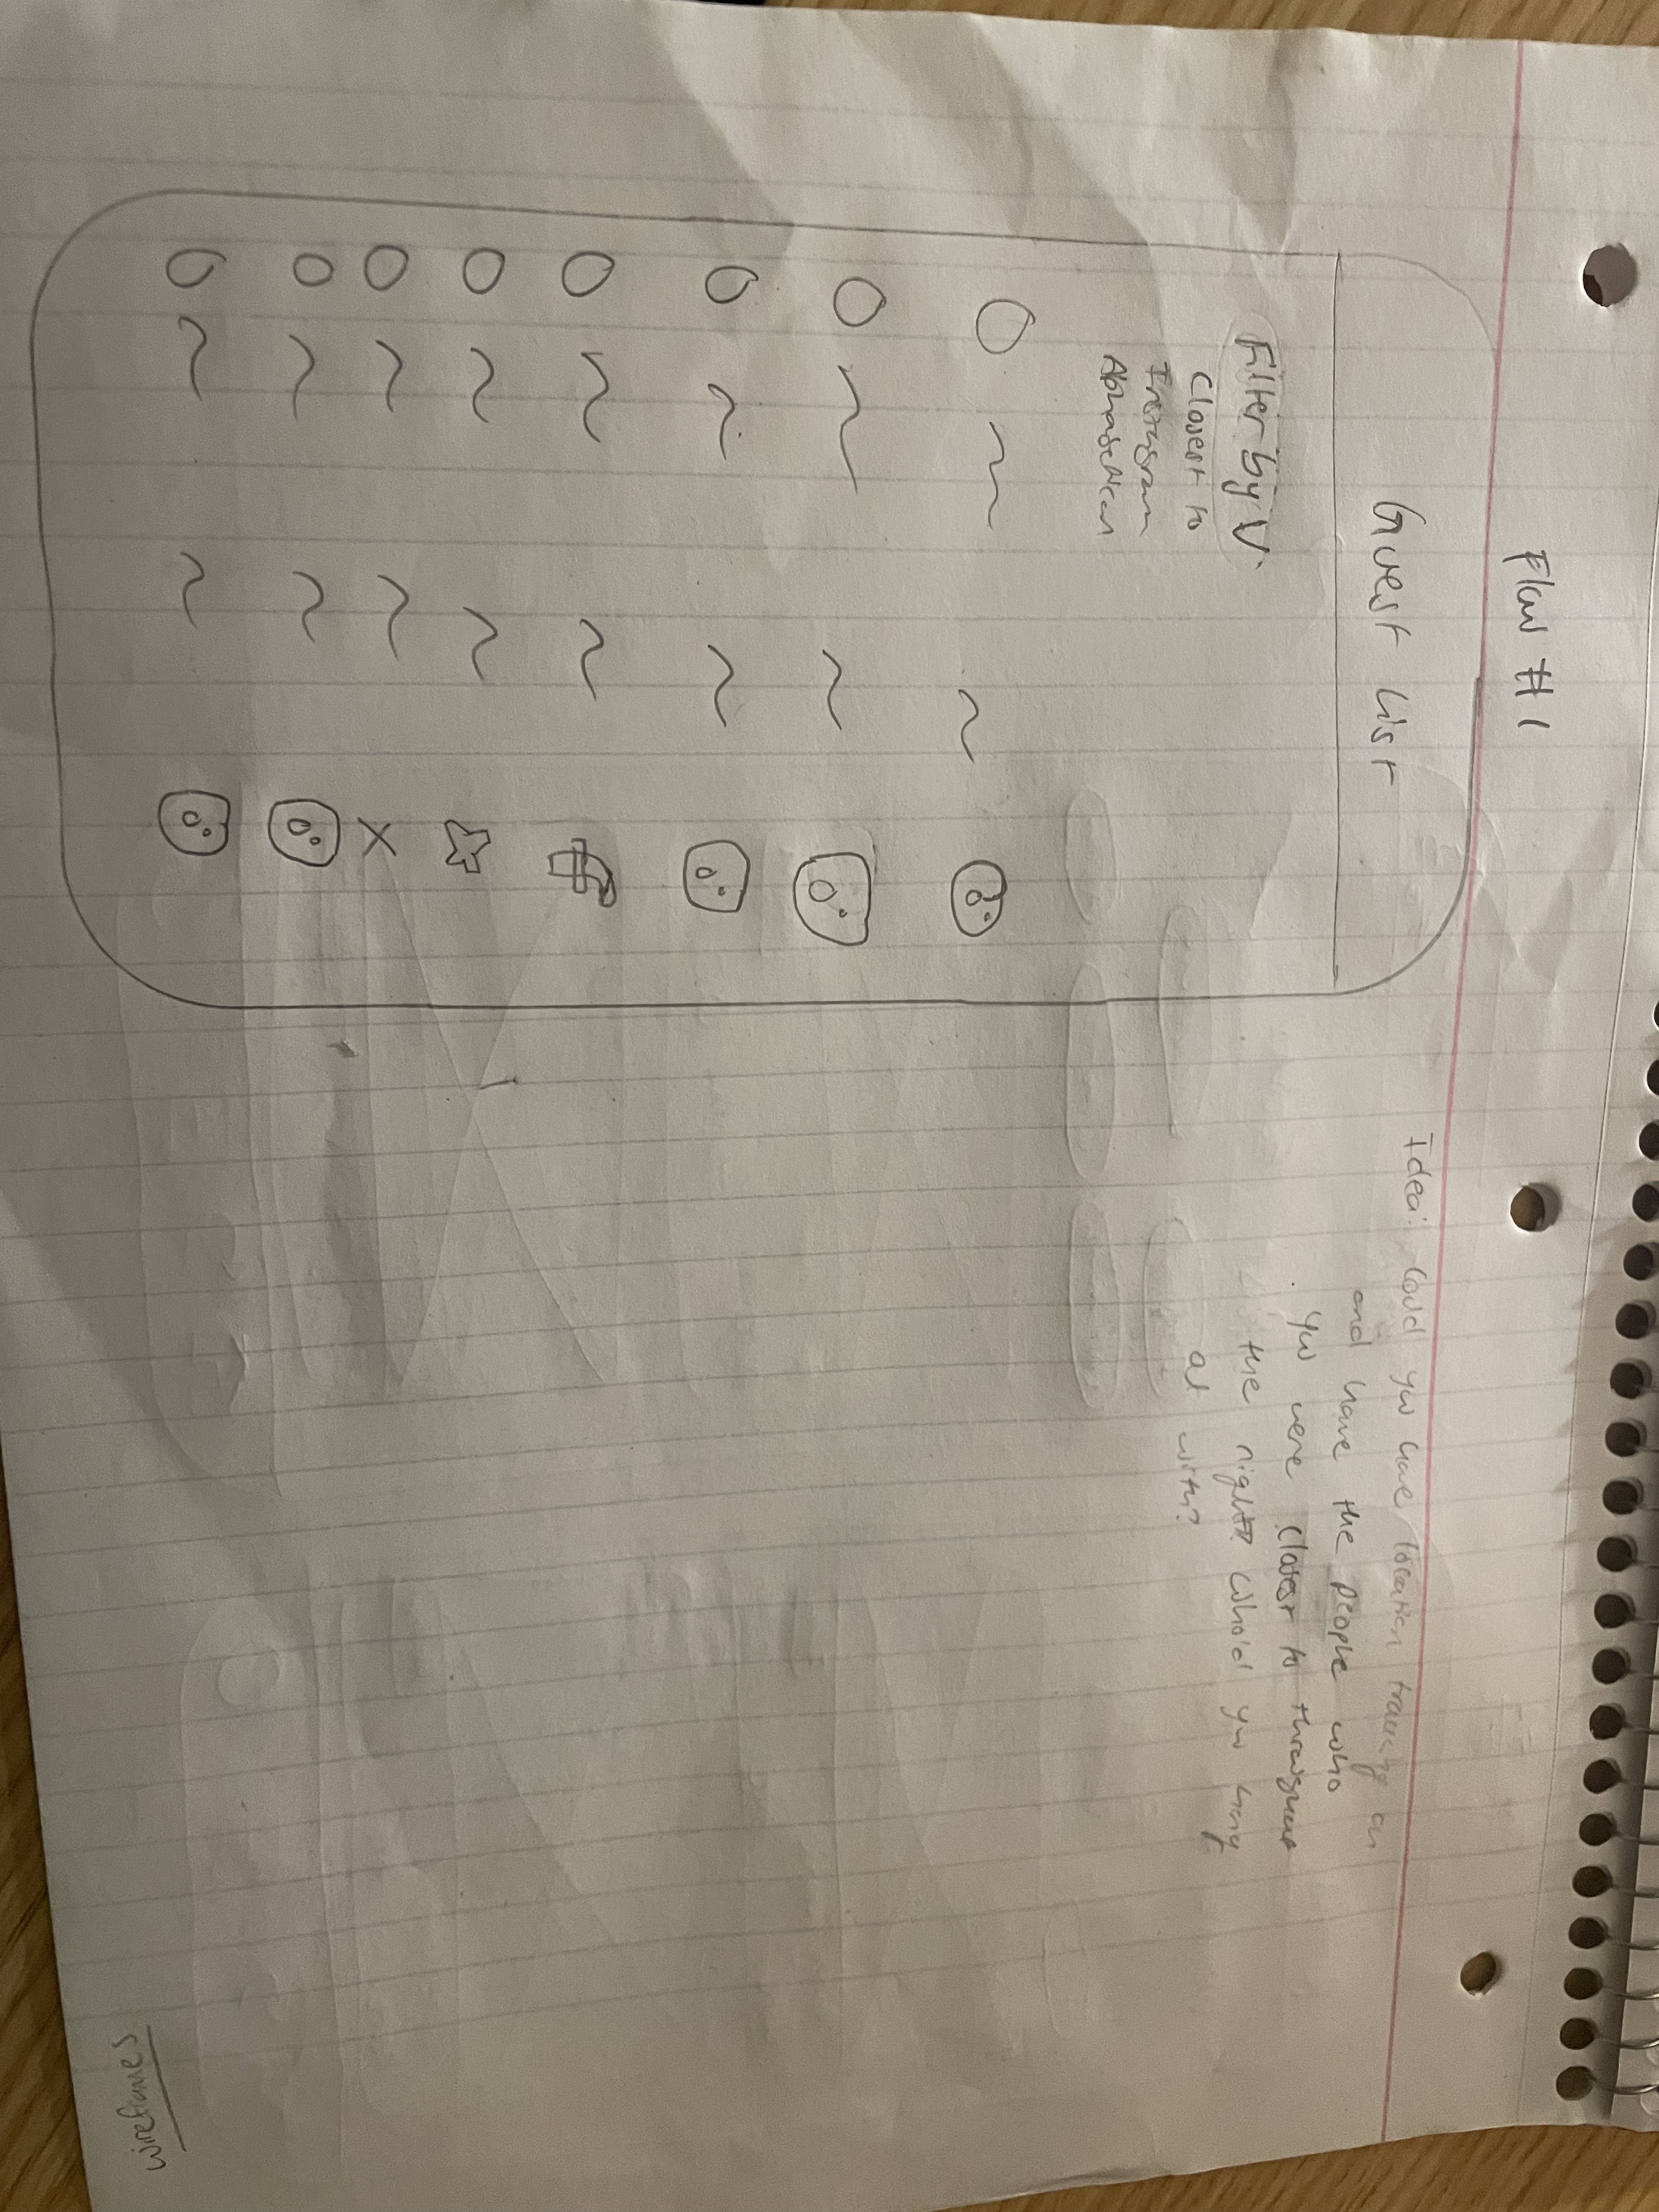 Flow #1
Guest List
Filter by V
Closest to
Instagram
Alphabetical
Idea: Could you have location tracking on
and have the people who
you were closest to throughout
the night? Who'd you hang
out with?
Wireframes